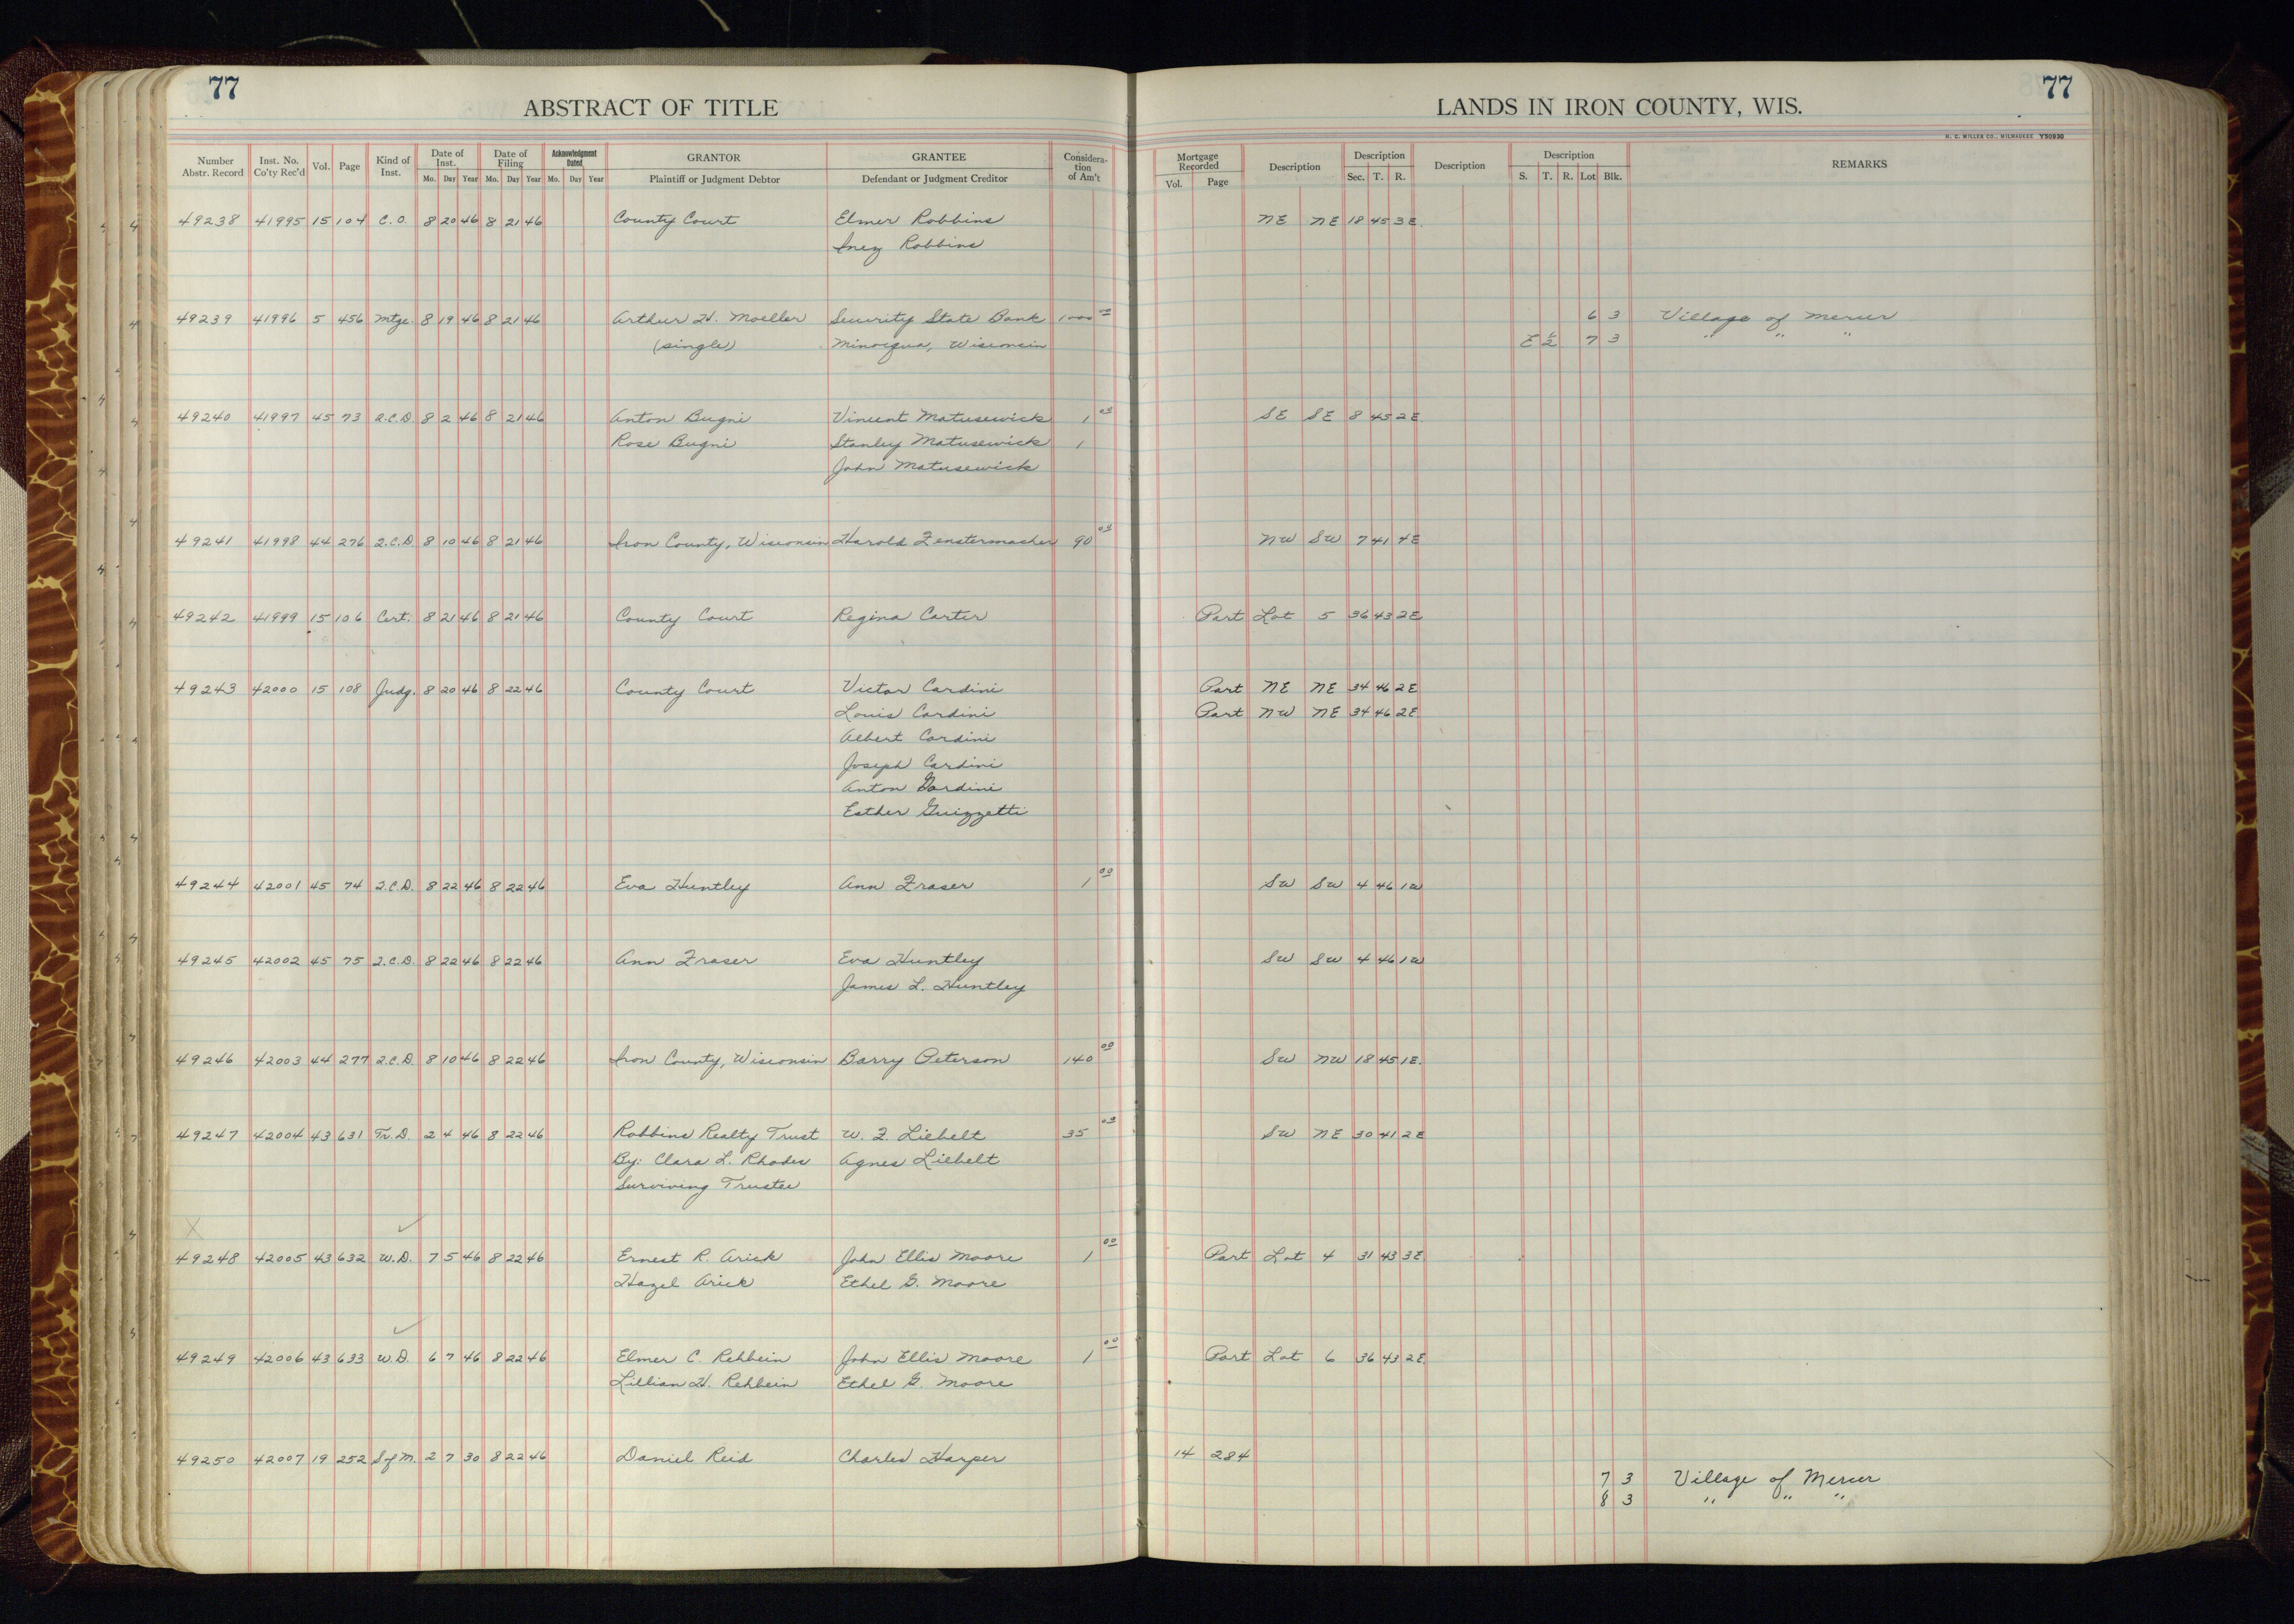 77
77
ABSTRACT OF TITLE
LANDS IN IRON COUNTY, WIS.
H. C. MILLER CO., MILWAUKEE Y50930
Number Abstr. Record Inst. No. Co'ty Rec'd Vol. Page Kind of Inst. Date of Inst. Mo. Day Year Date of Filing Mo. Day Year Acknowledgment Dated Mo. Day Year GRANTOR Plaintiff or Judgment Debtor GRANTEE Defendant or Judgment Creditor Consideration of Am't Mortgage Recorded Vol. Page Description Description Sec. T. R. Description Description S. T. R. Lot Blk. REMARKS
49238 41995 15 104 C.O. 8 20 46 8 21 46 County Court Elmer Robbins NE NE 18 45 3E.
Inez Robbins
49239 41996 5 456 Mtge. 8 19 46 8 21 46 Arthur H. Moeller Security State Bank 1000 00 6 3 Village of Mercer
(single) Minocqua, Wisconsin E 1/2 7 3 " " "
49240 41997 45 73 Q.C.D. 8 2 46 8 21 46 Anton Bugni Vincent Matusewick 1 00 SE SE 8 45 2E.
Rose Bugni Stanley Matusewick 1
John Matusewick
49241 41998 44 276 Q.C.D. 8 10 46 8 21 46 Iron County, Wisconsin Harold Fenstermacher 90 00 NW SW 7 41 4E
49242 41999 15 106 Cert. 8 21 46 8 21 46 County Court Regina Carter Part Lot 5 36 43 2E
49243 42000 15 108 Judg. 8 20 46 8 22 46 County Court Victor Cardini Part NE NE 34 46 2E
Louis Cardini Part NW NE 34 46 2E
Albert Cardini
Joseph Cardini
Anton Gardini
Esther Guizzetti
49244 42001 45 74 Q.C.D. 8 22 46 8 22 46 Eva Huntley Ann Fraser 1 00 SW SW 4 46 1W
49245 42002 45 75 Q.C.D. 8 22 46 8 22 46 Ann Fraser Eva Huntley SW SW 4 46 1W
James L. Huntley
49246 42003 44 277 Q.C.D. 8 10 46 8 22 46 Iron County, Wisconsin Barry Peterson 140 00 SW NW 18 45 1E.
49247 42004 43 631 Tr.D. 2 4 46 8 22 46 Robbins Realty Trust W. F. Liebelt 35 00 SW NE 30 41 2E
By: Clara L. Rhodes Agnes Liebelt
Surviving Trustee
49248 42005 43 632 W.D. 7 5 46 8 22 46 Ernest R. Arick John Ellis Moore 1 00 Part Lot 4 31 43 3E.
Hazel Arick Ethel G. Moore
49249 42006 43 633 W.D. 6 7 46 8 22 46 Elmer C. Rehbein John Ellis Moore 1 00 Part Lot 6 36 43 2E.
Lillian H. Rehbein Ethel G. Moore
49250 42007 19 252 S of M. 2 7 30 8 22 46 Daniel Reid Charles Harper 14 284
7 3 Village of Mercer
8 3 " " "